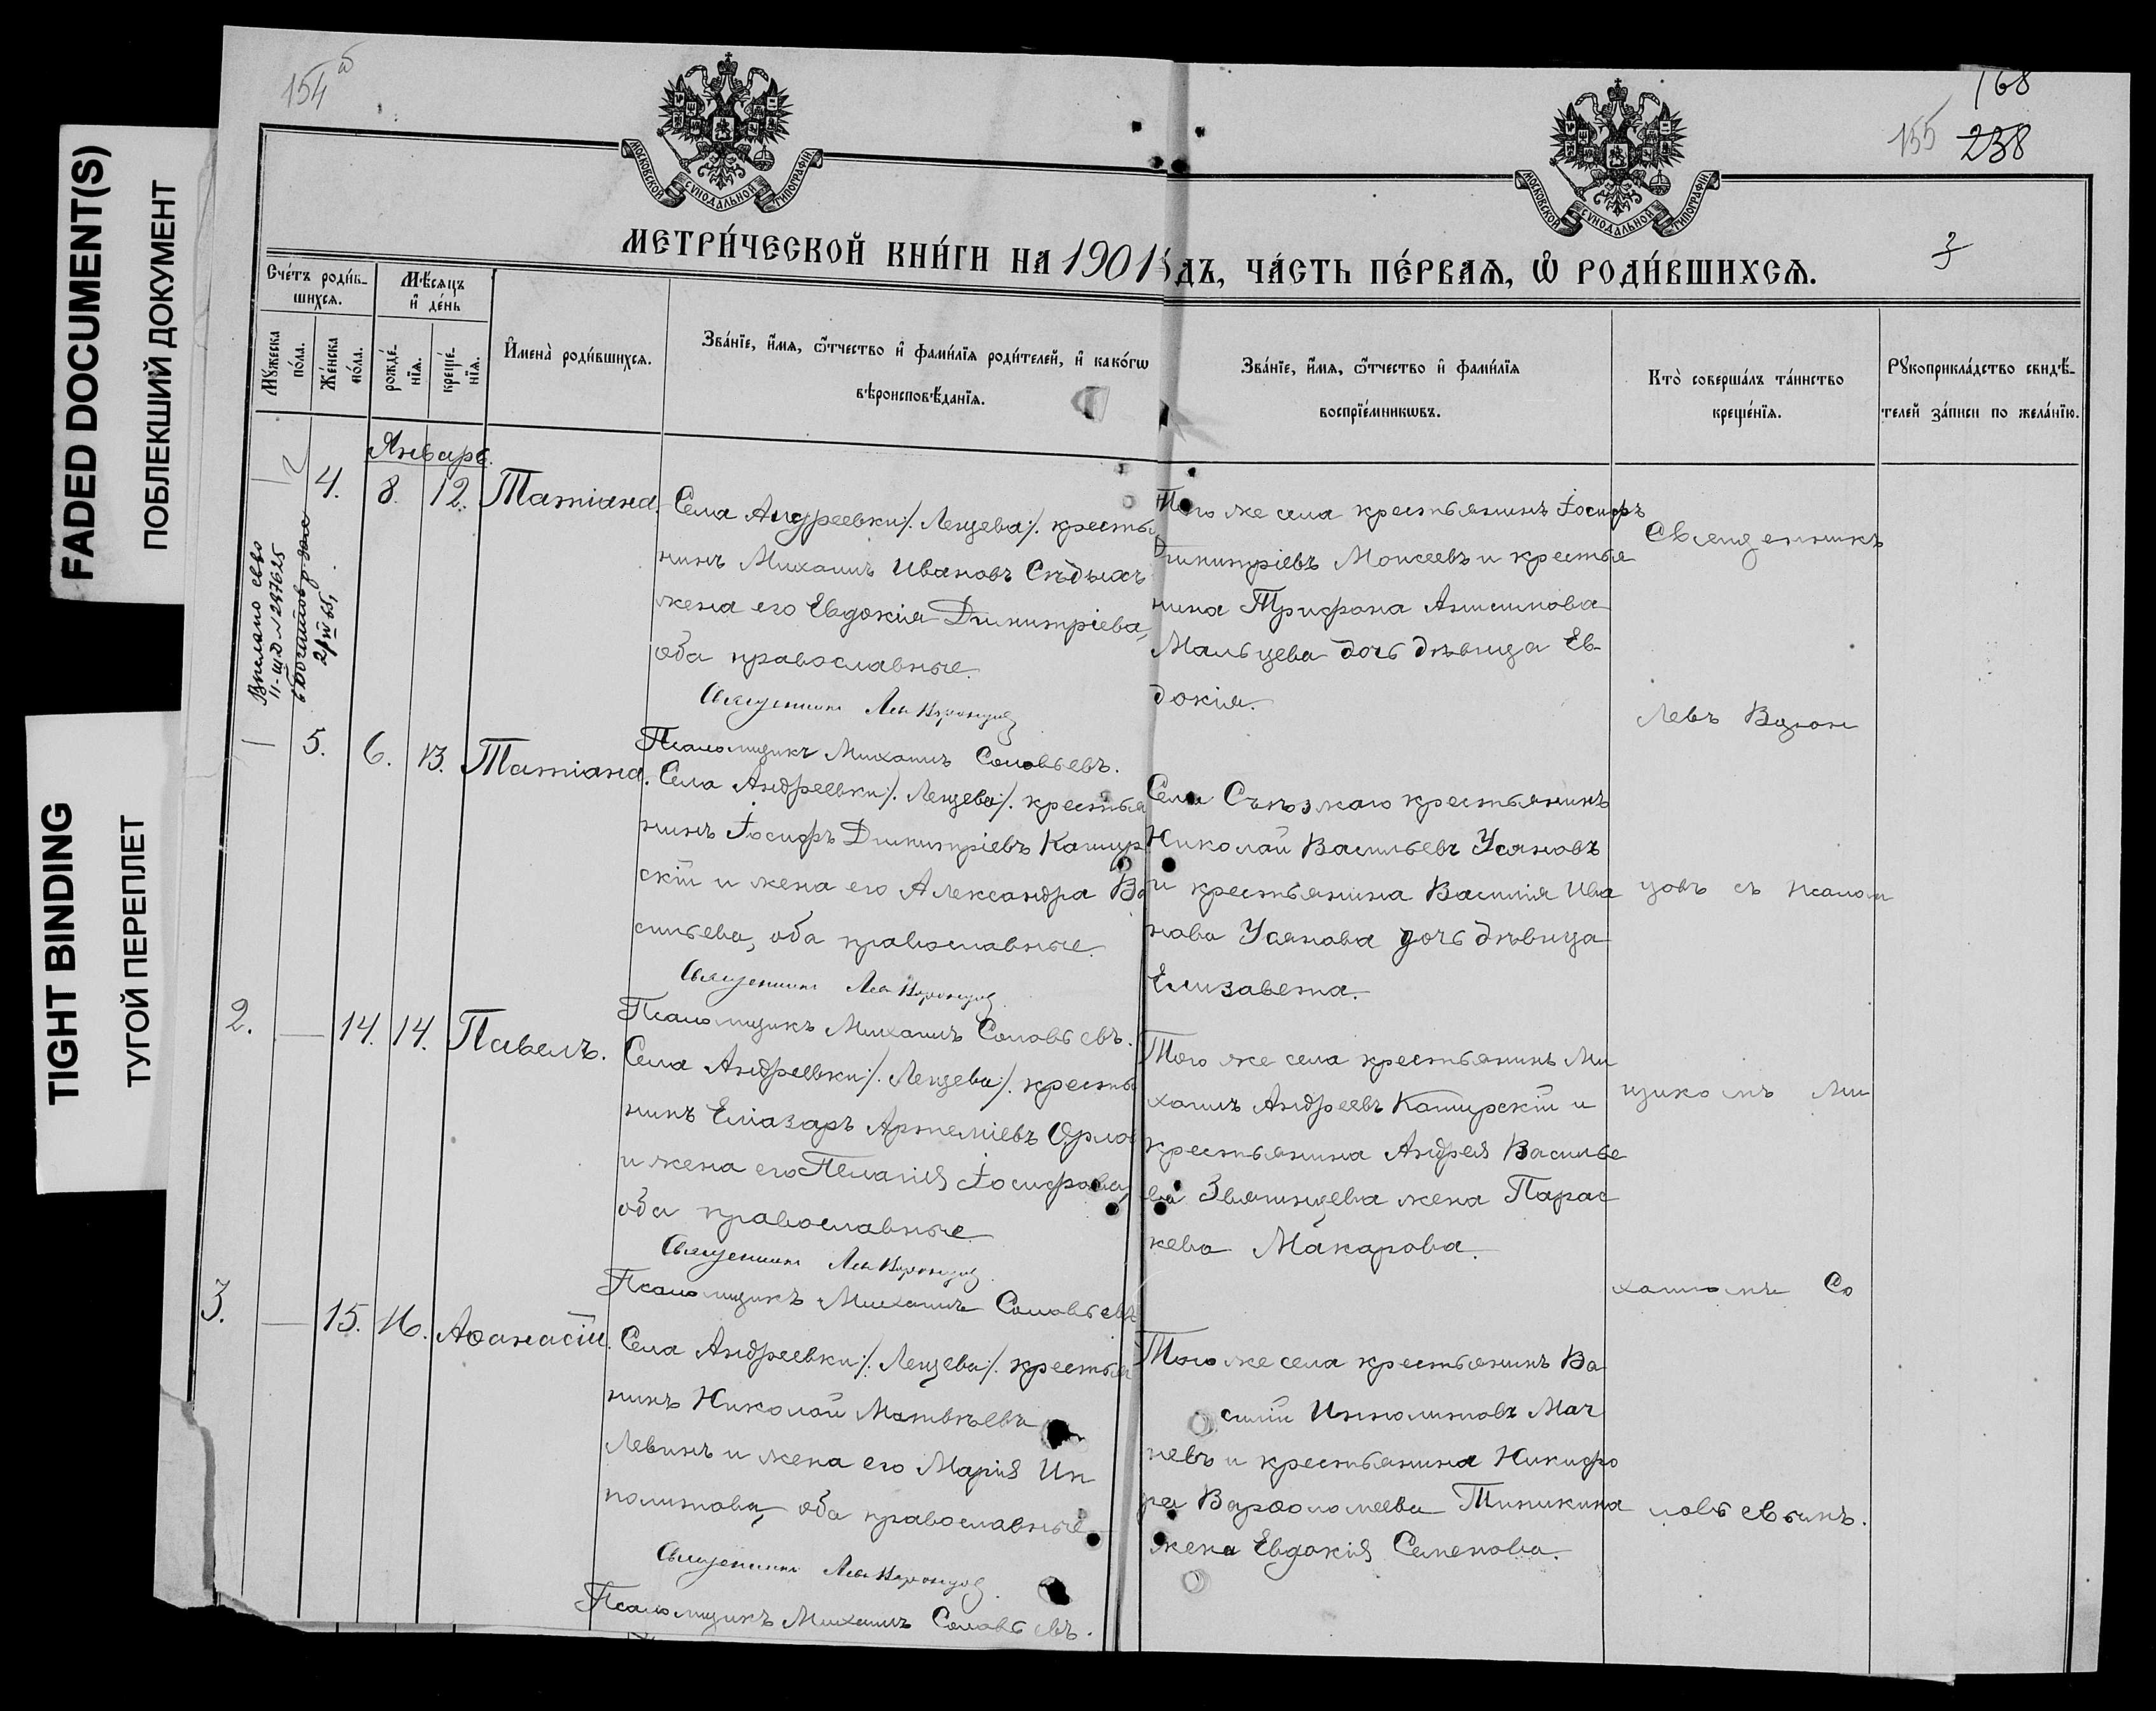 FADED DOCUMENT(S)
ПОБЛЕКШИЙ ДОКУМЕНТ
TIGHT BINDING
ТУГОЙ ПЕРЕПЛЕТ
154
168
155 238
МОСКОВСКОЙ СѴНОДАЛЬНОЙ ТИПОГРАФІИ
МОСКОВСКОЙ СѴНОДАЛЬНОЙ ТИПОГРАФІИ
3
МЕТРИ́ЧЕСКОЙ КНИ́ГИ НА 1901 ДЪ, ЧА́СТЬ ПЕ́РВАѦ, Ѡ҆ РОДИ́ВШИХСѦ.
Сче́тъ роди́в-
шихсѧ.
Мꙋ́жеска
по́ла.
Же́нска
по́ла.
Мѣ́сѧцъ
и҆ де́нь
рожде́-
нїѧ.
креще́-
нїѧ.
И҆мена̀ роди́вшихсѧ.
Зва́нїе, и҆́мѧ, ѻ҆́тчество и҆ фами́лїѧ роди́телей, и҆ како́гѡ
вѣроисповѣ́данїѧ.
Зва́нїе, и҆́мѧ, ѻ҆́тчество и҆ фами́лїѧ
воспрїе́мникѡвъ.
Кто̀ соверша́лъ та́инство
креще́нїѧ.
Рꙋкоприкла́дство свидѣ́-
телей за́писи по жела́нїю.
Январь.
— 4. 8. 12. Татіана.
Села Андреевки /. Лещева /. крестья
нинъ Михаилъ Ивановъ Сѣдыхъ
жена его Евдокія Димитріева,
оба православные.
Священникъ Левъ Воронцовъ
Псаломщикъ Михаилъ Соловьевъ.
Того же села крестьянинъ Іосифъ
Димитріевъ Моисеевъ и крестья
нина Трифона Анисимова
Мальцева дочь дѣвица Ев-
докія.
Выслано св-во
11-III-Д № 247625
— 5. 6. 13. Татіана.
Села Андреевки /. Лещева /. крестья
нинъ Іосифъ Димитріевъ Кашир
скій и жена его Александра Ва
сильева, оба православные.
Священникъ Левъ Воронцовъ
Псаломщикъ Михаилъ Соловьевъ.
Села Съѣзжаго крестьянинъ
Николай Васильевъ Усановъ
и крестьянина Василія Ива
нова Усанова дочь дѣвица
Елизавета.
2. — 14. 14. Павелъ.
Села Андреевки /. Лещева /. крестья
нинъ Еліазаръ Артеміевъ Орлов
и жена его Пелагія Іосифова,
оба православные.
Священникъ Левъ Воронцовъ
Псаломщикъ Михаилъ Соловьевъ
Того же села крестьянинъ Ми
хаилъ Андреевъ Каширскій и
крестьянина Андрея Василье
ва Звягинцева жена Парас
кева Макарова.
3. — 15. 16. Аѳанасій.
Села Андреевки /. Лещева /. крестья
нинъ Николай Матвѣевъ
Левинъ и жена его Марія Ип
политова, оба православные
Священникъ Левъ Воронцовъ
Псаломщикъ Михаилъ Соловьевъ.
Того же села крестьянинъ Ва
силій Ипполитовъ Мач
невъ и крестьянина Никифо
ра Варѳоломеева Типикина
жена Евдокія Семенова.
Священникъ
Левъ Ворон
цовъ съ псалом
щикомъ Ми
хаиломъ Со
ловьевымъ.